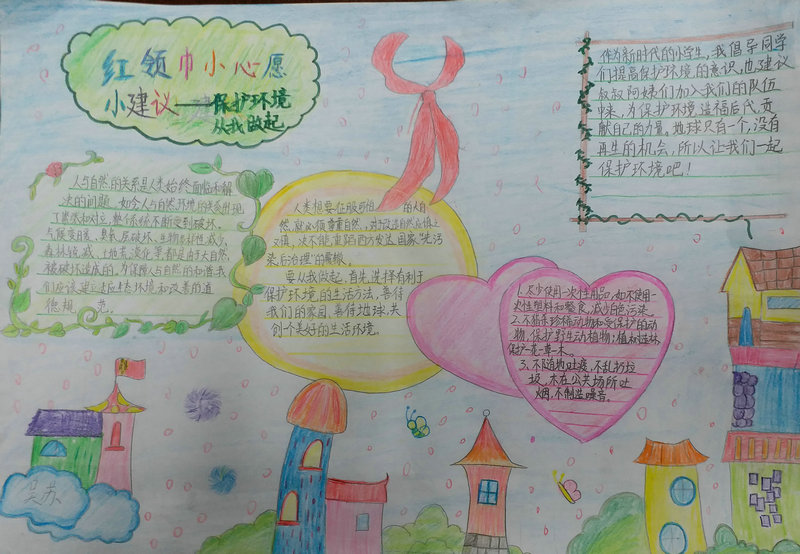 红领巾小心愿
小建议——保护环境
从我做起
人与自然的关系是人类始终面临和解
决的问题。如今人与自然环境的关系出现
了紧张和对立，整个系统不断受到破坏。
气候变暖、臭氧层破坏、生物多样性减少、
森林锐减、土地荒漠化等都是由于大自然
被破坏造成的。为保障人与自然的和谐我
们应该建立适应生态环境和改善的道
德规 范。
人类想要征服可怕 的大自
然，就必须尊重自然，对于改造自然应慎之
又慎，决不能重蹈西方发达国家“先污
染后治理”的覆辙。
要从我做起，首先选择有利于
保护环境的生活方法，善待
我们的家园，善待地球，共
创个美好的生活环境。
1.尽少使用一次性用品，如不使用一
次性塑料和餐食，减少白色污染。
2.不捕杀珍稀动物和受保护的动
物，保护野生动植物；植树造林
保护一花一草一木。
3、不随地吐痰，不乱扔垃
圾，不在公共场所吐
烟，不制造噪音。
作为新时代的小学生，我倡导同学
们提高保护环境的意识，也建议
叔叔阿姨们加入我们的队伍
中来，为保护环境造福后代贡
献自己的力量。地球只有一个，没有
再生的机会，所以让我们一起
保护环境吧！
吴苏